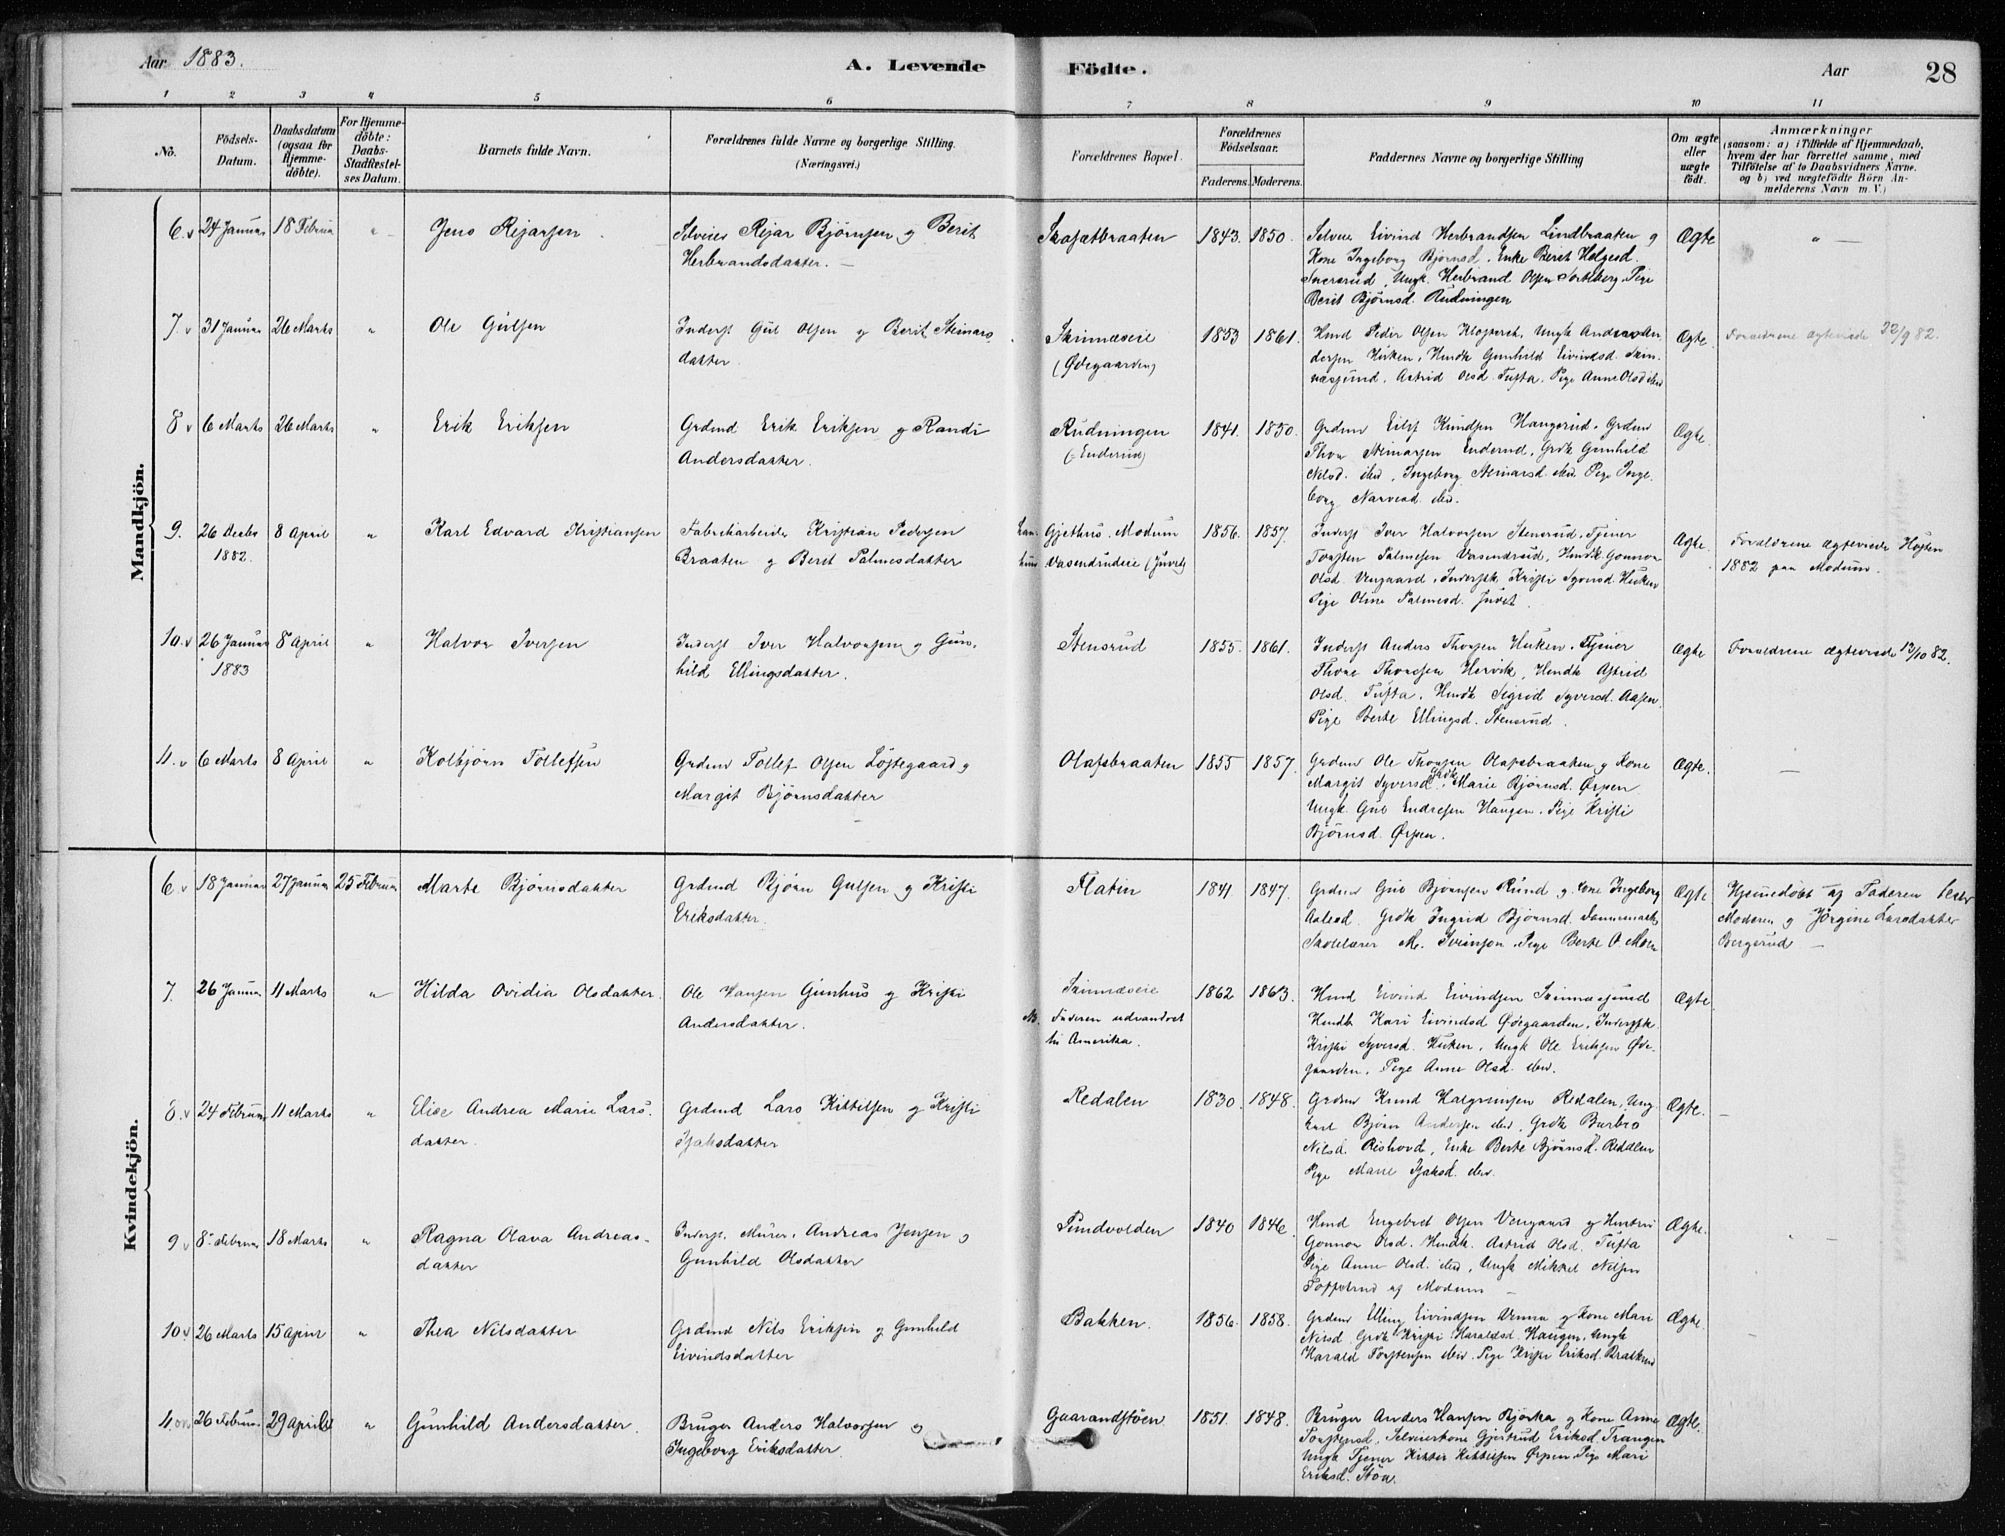 Aar 1883.
A. Levende
Födte.
Aar
28
1 2 3 4 5 6 7 8 9 10 11
No.
Födsels-
Datum.
Daabsdatum
(ogsaa for
Hjemme-
döbte).
For Hjemme-
döbte:
Daabs-
Stadfestel-
ses Datum.
Barnets fulde Navn.
Forældrenes fulde Navne og borgerlige Stilling.
(Næringsvei.)
Forældrenes Bopæl.
Forældrenes
Födselsaar.
Faderens. Moderens.
Faddernes Navne og borgerlige Stilling
Om ægte
eller
uægte
födt.
Anmærkninger
(saasom: a) i Tilfælde af Hjemmedaab,
hvem der har forrettet samme, med
Tilföielse af to Daabsvidners Navne,
og b) ved uægtefödte Börn An-
melderens Navn m. V.)
Mandkjön.
6. 24 Januar 18 Februar " Jens Rejarsen
Selveier Rejar Bjørnsen og Berit
Herbrandsdatter.
1843. 1850.
Selveier Eivind Herbrandsen Lindbraaten og
Kone Ingeborg Bjørnsd. Enke Berit Helgesd.
Ungk. Herbrand Olsen Pige
Berit Bjørnsd. Rudningen
Ægte
"
7. 31 Januar 26 Marts " Ole Gulsen
Inderst Gul Olsen og Berit Steinars
datter.
Skinnæseie
(Ødegaarden)
1853 1861.
Hmd Peder Olsen Ungk Andreas An
dersen Huken, Hmdk Gunhild Eivindsd. Skin-
næsjund. Astrid Olsd. Tufta, Pige Anne Olsd ibid
Ægte.
Forældrene ægteviede 22/9 82.
8 6 Marts 26 Marts " Erik Eriksen
Grdmd Erik Eriksen og Randi
Andersdatter.
Rudningen
(: Enderud)
1841. 1850.
Grdmd Eilif Knudsen Haugerud. Grdmd
Thor Steinarsen Enderud, Grdk Gunhild
Nilsd. ibid, Ingeborg Steinarsd. ibid. Pige Inge
borg Narvesd. ibid.
Ægte.
9. 26 Decbr 8 April " Karl Edvard Kristiansen
1882.
Fabrikarbeider Kristian Pedersen
Braaten og Berit Palmesdatter
Gjethus. Modum
Vasendrudeie (Juvet)
1856. 1857.
Inderst Iver Halvorsen Stensrud, Tjener
Torsten Palmesen Vasendrud, Hmdk. Gonnor
Olsd. Vengaard, Inderstk Kristi Syversd. Huken
Pige Oline Palmesd. Juvet.
Ægte.
Forældrene ægteviede Høsten
1882 paa Modum.
10. 26 Januar 8 April " Halvor Iversen
1883
Inderst Iver Halvorsen og Gun-
hild Ellingsdatter.
Stensrud
1855. 1861.
Inderst Anders Thorsen Huken. Tjener
Thore Thoresen Hervik, Hmdk Astrid
Olsd. Tufta, Hmdk Sigrid Syversd. Aasen.
Pige Berte Ellingsd. Stensrud.
Ægte
Forældrene ægteviede 12/10 82.
11. 6 Marts 8 April " Kolbjørn Tollefsen
Grdmd Tollef Olsen Løjtegaard og
Margit Bjørnsdatter
Olafsbraaten
1855 1857.
Grdmd Ole Thorsen Olafsbraaten og Kone
Margit Syversd. Grdk. Marie Bjørnsd. Ørpen
Ungk. Gul Endresen Haugen. Pige Kristi
Bjørnsd. Ørpen.
Ægte.
Kvindekjön.
6. 18 Januar 27 Januar 25 Februar Marte Bjørnsdatter
Grdmd Bjørn Gulsen og Kristi
Eriksdatter.
Flatin
1841 1847.
Grdmd Gul Bjørnsen Rund og Kone Ingeborg
Grdk Ingrid Bjørnsd.
Skolelærer M. Pige Berte O. Moen
Ægte
Hjemmedøbt af Faderen
Moderen og Jørgine Larsdatter
Bergerud
7. 26 Januar 11 Marts " Hilda Ovidia Olsdatter.
Ole Hansen Gunhus og Kristi
Andersdatter.
Skinnæseie
NB. Faderen udvandret
til Amerika.
1862 1863.
Hmd Eivind Eivindsen Skinnæsjund
Hmdk Kari Eivindsd Ødegaarden, Inderstk.
Kristi Syversd. Huken, Ungk Ole Eriksen Øde-
gaarden, Pige Anne Olsd. ibid.
Ægte.
8. 24 Februar 11 Marts " Elise Andrea Marie Lars-
datter.
Grdmd Lars Kittilsen og Kristi
Isaksdatter
Redalen
1830. 1848.
Grdmd Knud Halgrimsen Redalen, Ung
karl Bjørn Andersen ibid, Grdk Barbro
Nilsd. Rishovd, Enke Berte Bjørnsd. Redalen
Pige Marie Isaksd. ibid.
Ægte.
9 8 Februar 18 Marts " Ragna Olava Andreas-
datter
Inderst. Murer. Andreas Jensen og
Gunhild Olsdatter
Sundvolden
1840 1846.
Hmd Engebret Olsen Vengaard og Hustru
Gonnor Olsd. Hmdk. Astrid Olsd. Tufta
Pige Anne Olsd. ibid, Ungk Mikkel Nilsen
af Modum
Ægte.
10. 26 Marts 15 April " Thea Nilsdatter
Grdmd Nils Eriksen og Gunhild
Eivindsdatter
Bakken.
1856. 1858.
Grdmd Elling Eivindsen Venna og Kone Mari
Nilsd. Grdk Kristi Haraldsd. Haugen, Ungk
Harald Torstensen ibid. Pige Kristi Eriksd. Bratterud
Ægte.
11. 26 Februar 29 April " Gunhild Andersdatter.
Bruger Anders Halvorsen og
Ingeborg Eriksdatter.
Gaarandstøen.
1851. 1848.
Bruger Anders Hansen Bjørka og Kone Anne
Torstensd, Selveierkone Gjertrud Eriksd. Trangen
Ungk Tjener Kittil Kittilsen Ørpen, Pige Mari
Eriksd. Støa.
Ægte.